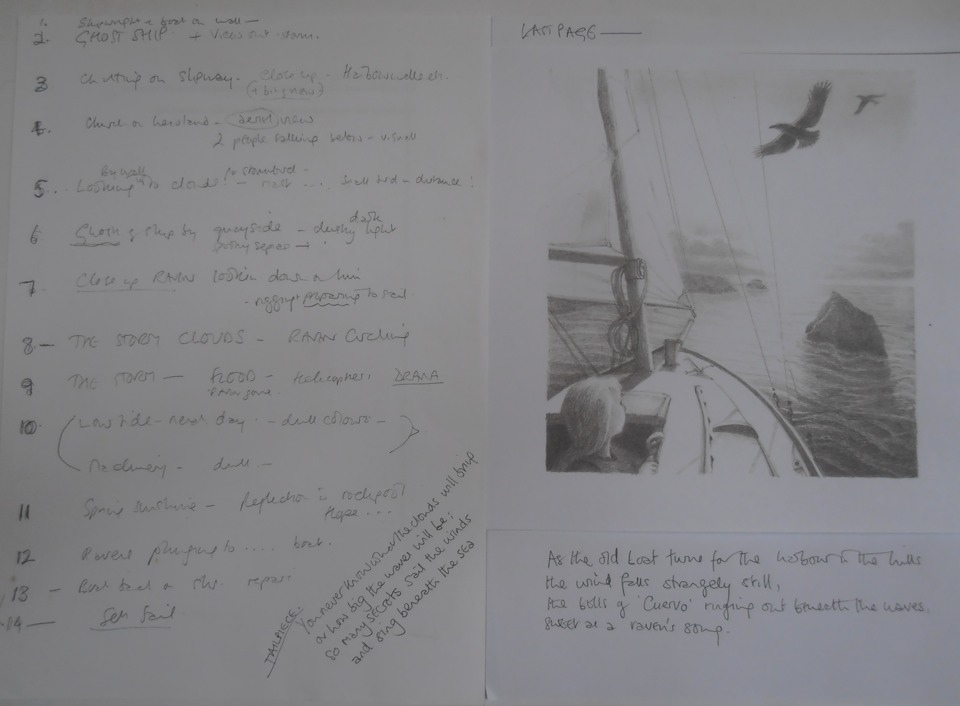 1. Shipwright & boat on wall —
2. GHOST SHIP + View out
3 Chatting on slipway. Close up - Harbour walls etc.
(a big nose)
4. Church on headland - aerial view
2 people talking below - v. small
By wall
5... Looking to clouds! - mast ... small bird - distance!
dark
6 Ghost of ship by quayside - dusky light
7 Close up RAVEN lookin down on him
- rigging preparing to sail
8 — THE STORM CLOUDS - RAVEN circling
9 THE STORM — FLOOD - Helicopter. DRAMA
10 Low tide - next day - dull colours -
Machinery - dull -
11 Spring sunshine - Reflection in rockpool
Hope ...
12 Ravens plunging to .... boat.
13 - Boat back on slip. repairs
14 — Set Sail
TAILPIECE:
You never know when the clouds will drip
or how big the waves will be;
so many secrets sail the winds
and sing beneath the sea
LAST PAGE —
As the old boat turns for the harbour & the hills
the wind falls strangely still,
the bells of 'Cuervo' ringing out beneath the waves,
sweet as a raven's song.